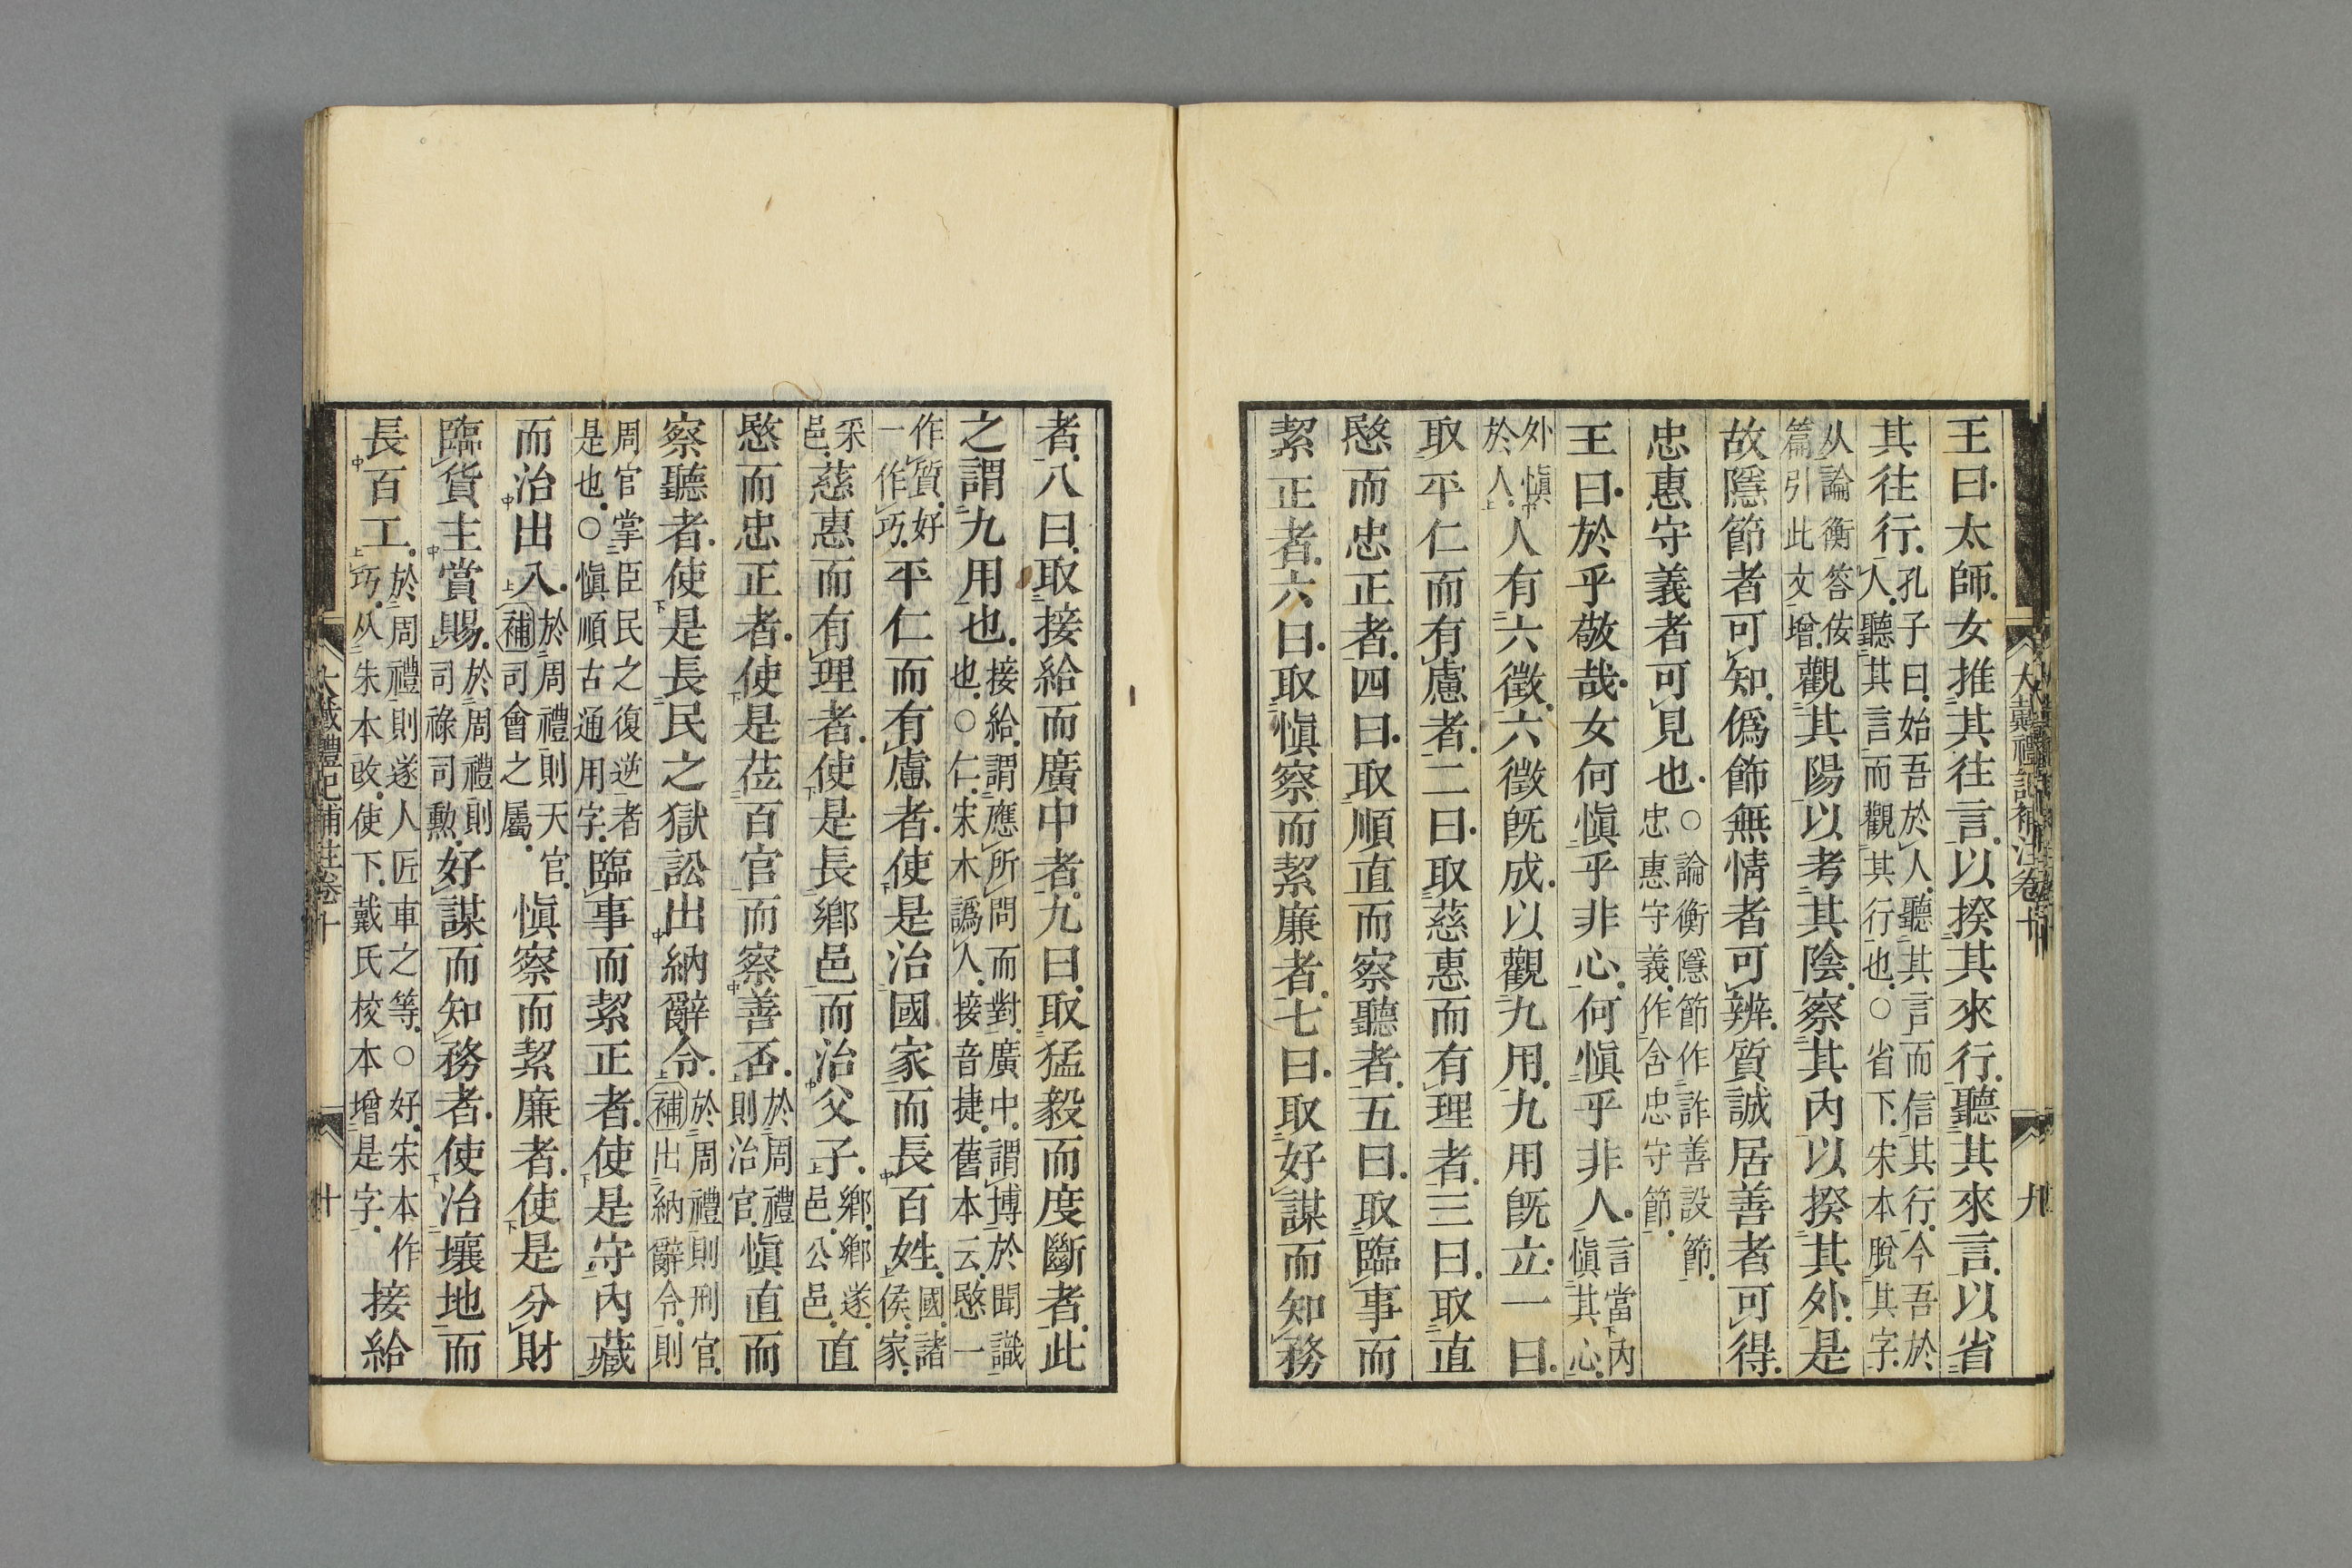 大戴禮記補注卷十 九
王曰太師女推其往言以揆其來行聽其來言以省
其往行孔子曰始吾於人聽其言而信其行今吾於
人聽其言而觀其行也○省下宋本脫其字
从論衡答佞
篇引此文增觀其陽以考其陰察其內以揆其外是
故隱節者可知僞飾無情者可辨質誠居善者可得
忠惠守義者可見也○論衡隱節作詐善設節
忠惠守義作含忠守節
王曰於乎敬哉女何愼乎非心何愼乎非人言當內
愼其心
外愼
於人人有六徵六徵既成以觀九用九用既立一曰
取平仁而有慮者二曰取慈惠而有理者三曰取直
愍而忠正者四曰取順直而察聽者五曰取臨事而
絜正者六曰取愼察而絜廉者七曰取好謀而知務
者八曰取接給而廣中者九曰取猛毅而度斷者此
之謂九用也接給謂應所問而對廣中謂博於聞識
也○仁宋木譌人接音捷舊本云愍一
作質好
一作巧平仁而有慮者使是治國家而長百姓國諸
侯家
采
邑慈惠而有理者使是長鄉邑而治父子鄉鄉遂
邑公邑直
愍而忠正者使是莅百官而察善否於周禮
則治官愼直而
察聽者使是長民之獄訟出納辭令於周禮則刑官
補出納辭令則
周官掌臣民之復逆者
是也○愼順古通用字臨事而絜正者使是守內藏
而治出入於周禮則天官
補司會之屬愼察而絜廉者使是分財
臨貨主賞賜於周禮則
司祿司勲好謀而知務者使治壤地而
長百工於周禮則遂人匠車之等○好宋本作
巧从朱本改使下戴氏校本增是字接給
大戴禮記補注卷十 十